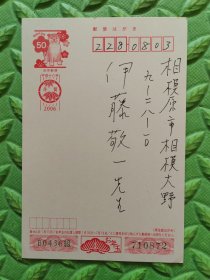 郵便はがき
50
2280803
2006
相模原市相模大野
九-二八-一〇
伊藤敬一先生
710872